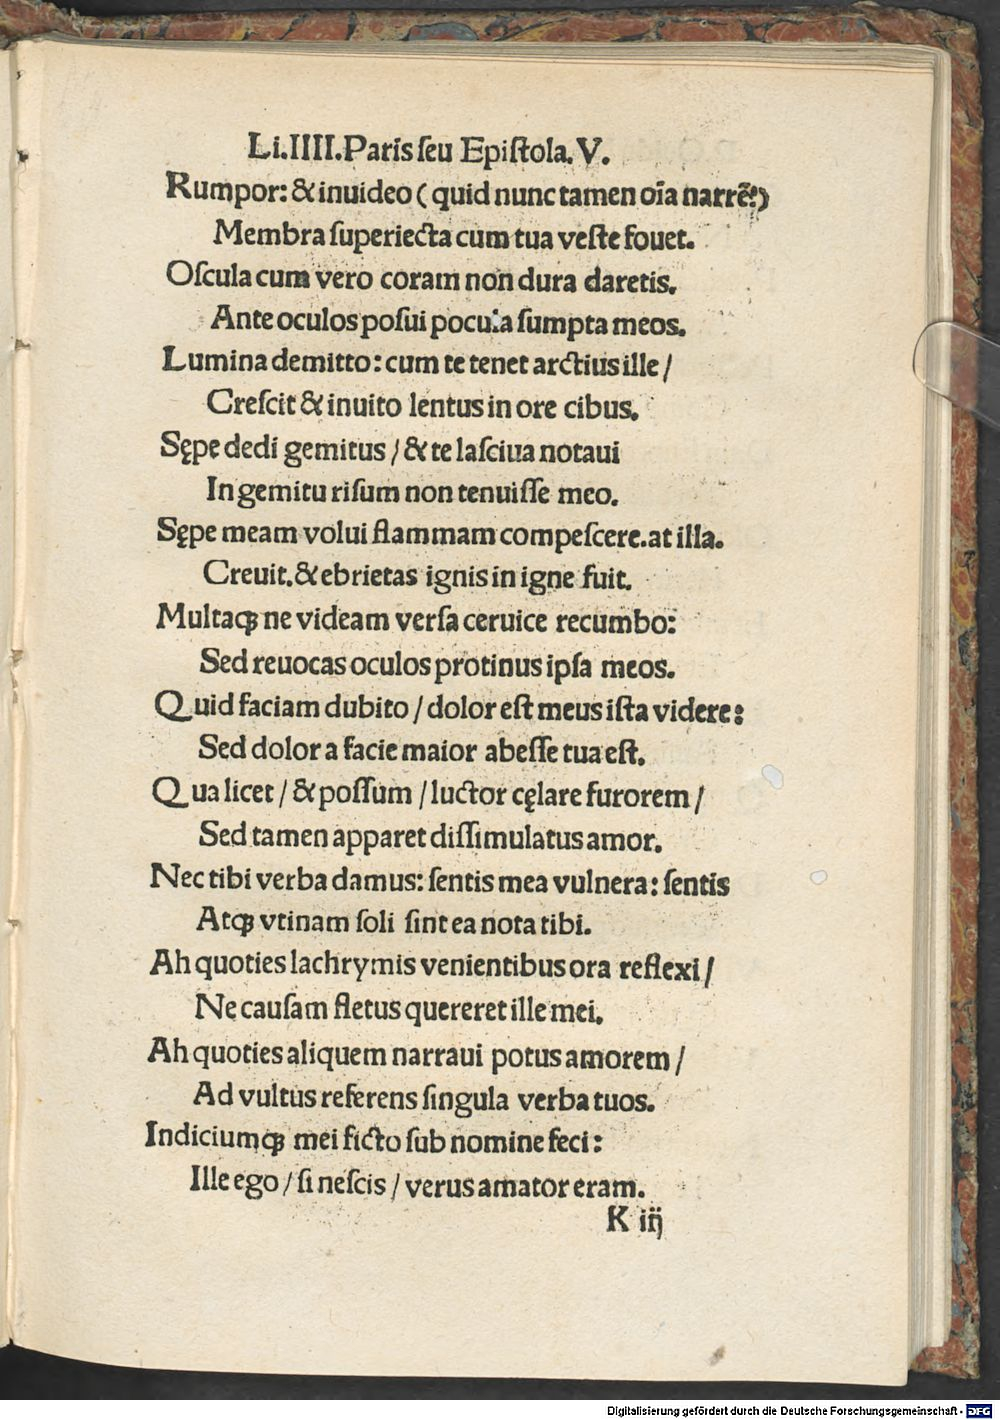 Li.IIII.Paris̄ ſeu Epiſtola.V.
Rumpor: & inuideo (quid nunc tamen oīa narrē?)
Membra ſuperiecta cum tua veſte fouet.
Oſcula cum vero coram non dura daretis.
Ante oculos poſui pocula ſumpta meos.
Lumina demitto: cum te tenet arctius ille /
Creſcit & inuito lentus in ore cibus.
Sępe dedi gemitus / & te laſciua notaui
In gemitu riſum non tenuiſſe meo.
Sępe meam volui flammam compeſcere. at illa.
Creuit. & ebrietas ignis in igne fuit.
Multaqꝫ ne videam verſa ceruice recumbo:
Sed reuocas oculos protinus ipſa meos.
Quid faciam dubito / dolor eſt meus iſta videre:
Sed dolor a facie maior abeſſe tua eſt.
Qua licet / & poſſum / luctor cęlare furorem /
Sed tamen apparet diſſimulatus amor.
Nec tibi verba damus: ſentis mea vulnera: ſentis
Atqꝫ vtinam ſoli ſint ea nota tibi.
Ah quoties lachrymis venientibus ora reflexi /
Ne cauſam fletus quereret ille mei.
Ah quoties aliquem narraui potus amorem /
Ad vultus referens ſingula verba tuos.
Indiciumqꝫ mei ficto ſub nomine feci:
Ille ego / ſi neſcis / verus amator eram.
K iij
Digitalisierung gefördert durch die Deutsche Forschungsgemeinschaft - DFG